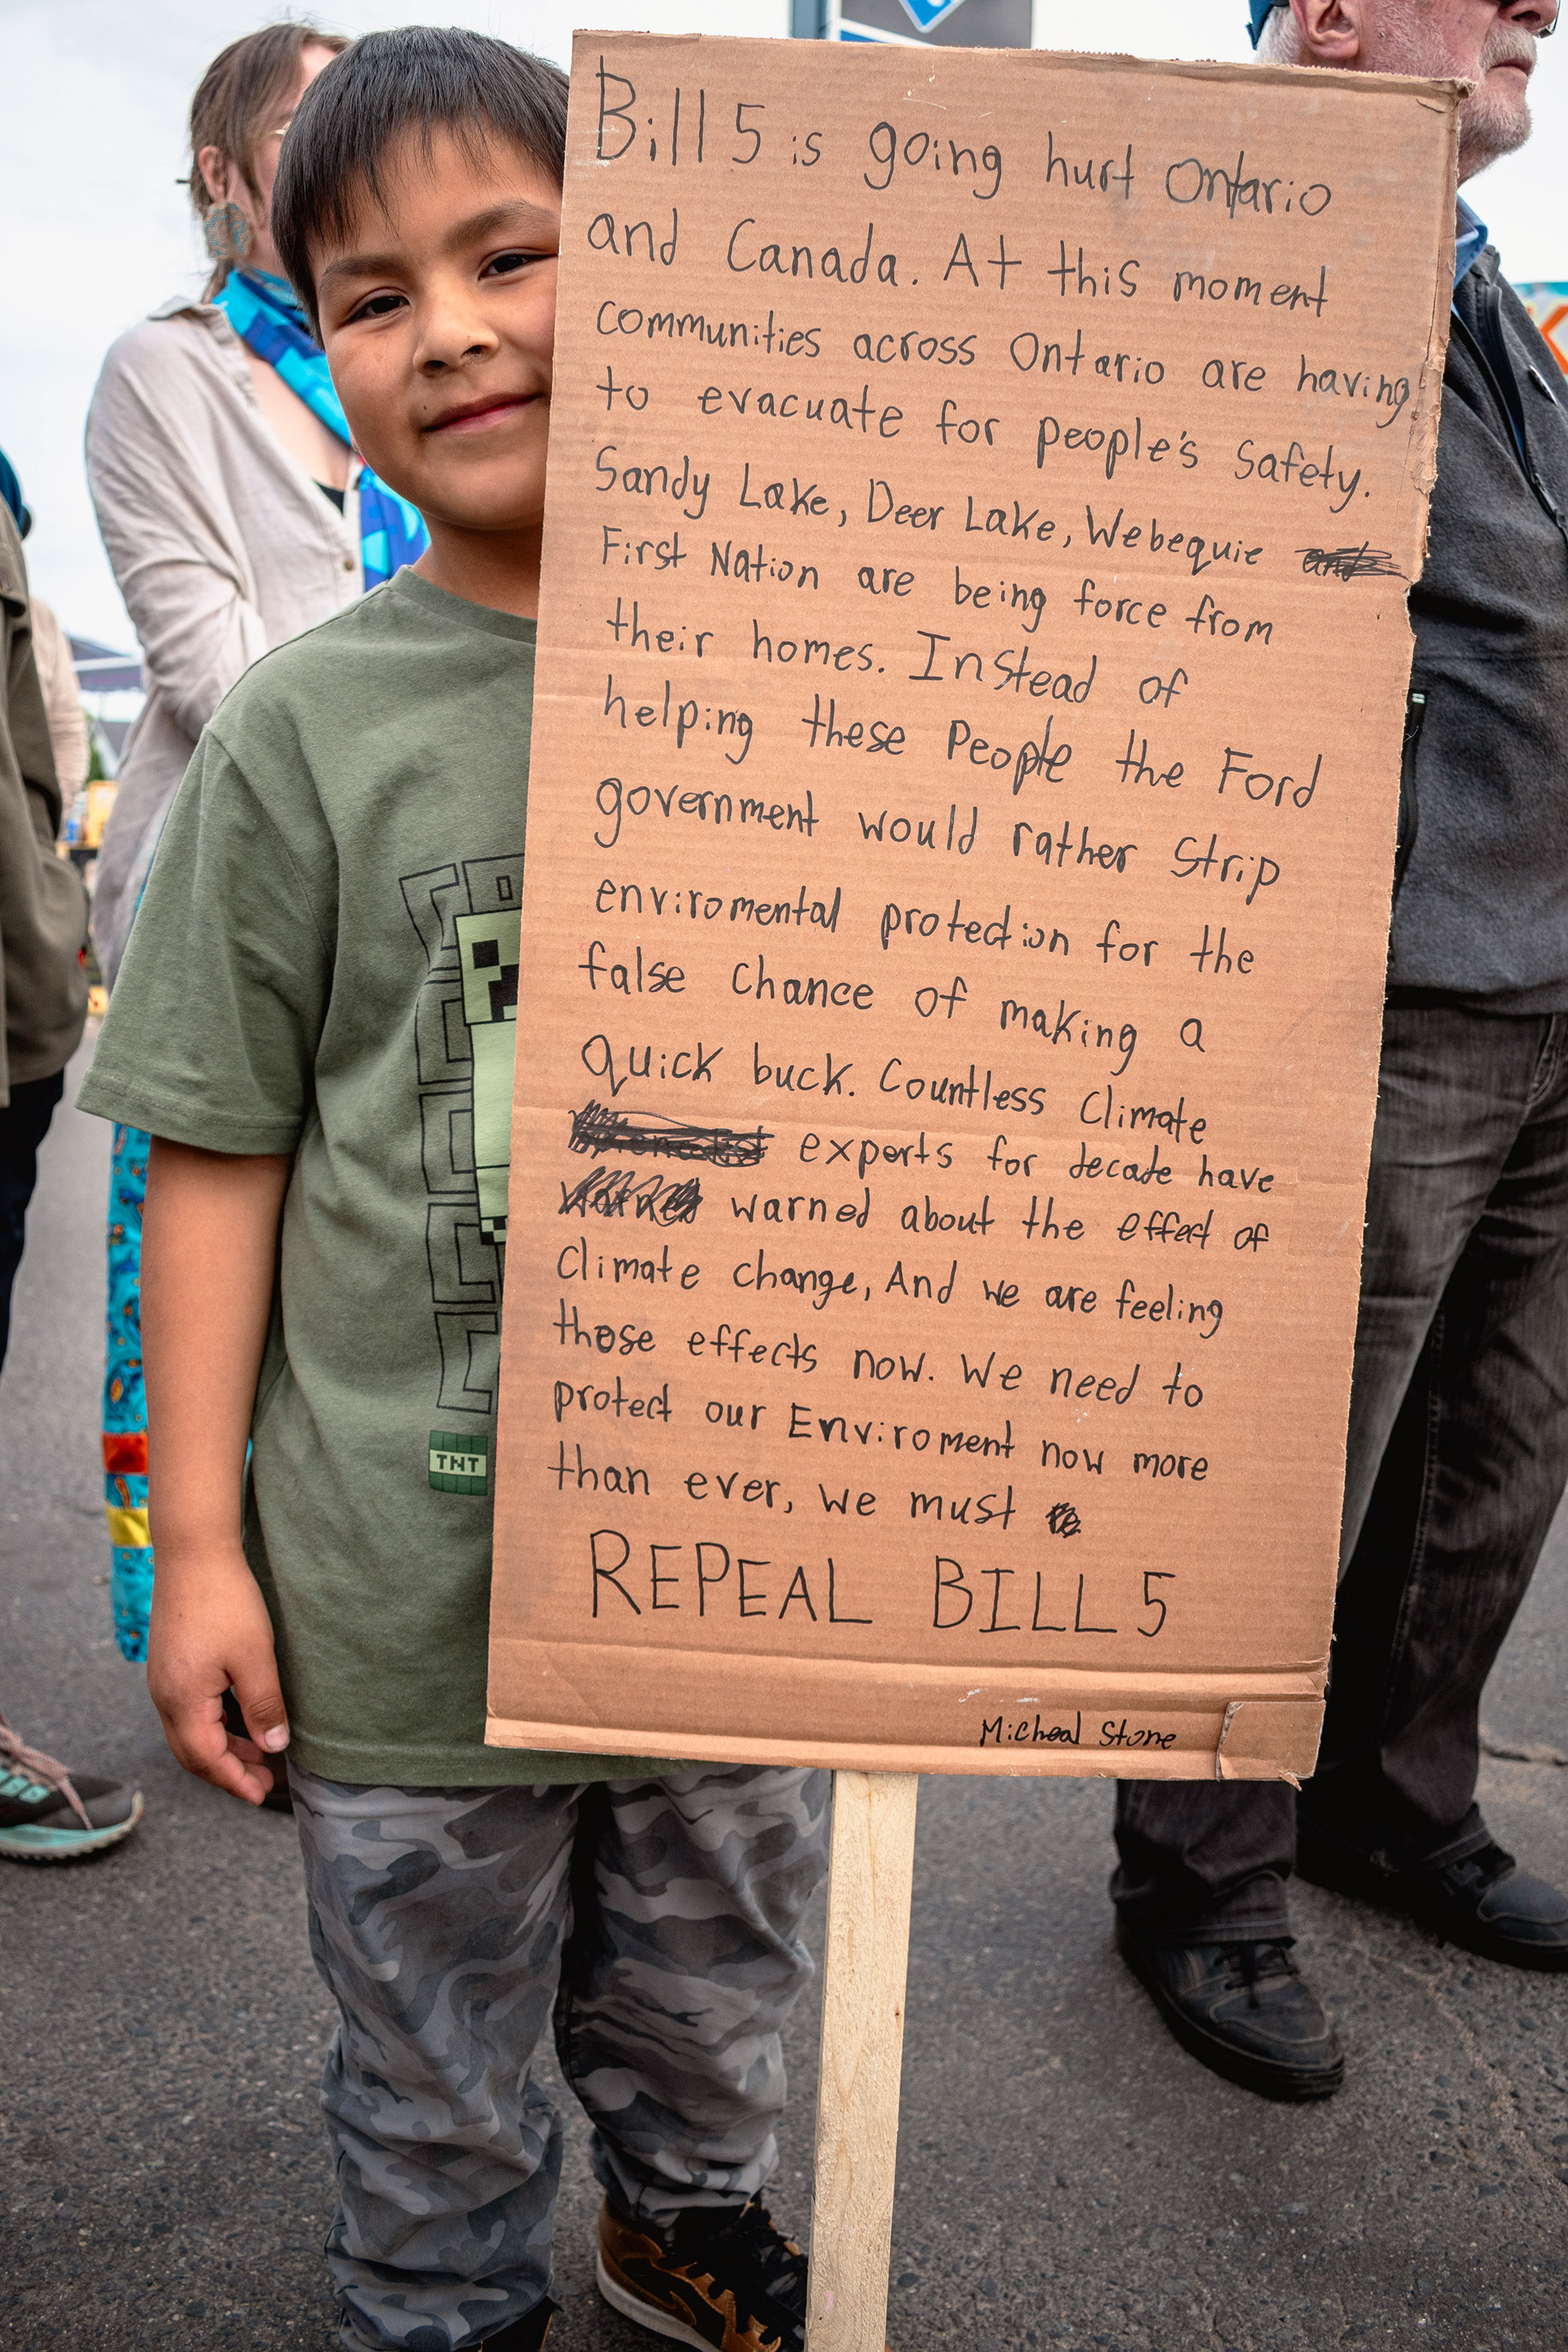 Bill 5 is going hurt Ontario
and Canada. At this moment
communities across Ontario are having
to evacuate for people's Safety.
Sandy Lake, Deer Lake, Webequie
First Nation are being force from
their homes. Instead of
helping these People the Ford
government would rather Strip
enviromental protection for the
false chance of making a
quick buck. Countless Climate
experts for decade have
warned about the effect of
Climate change, And we are feeling
those effects now. We need to
protect our Enviroment now more
than ever, we must
REPEAL BILL 5
Micheal Stone
TNT